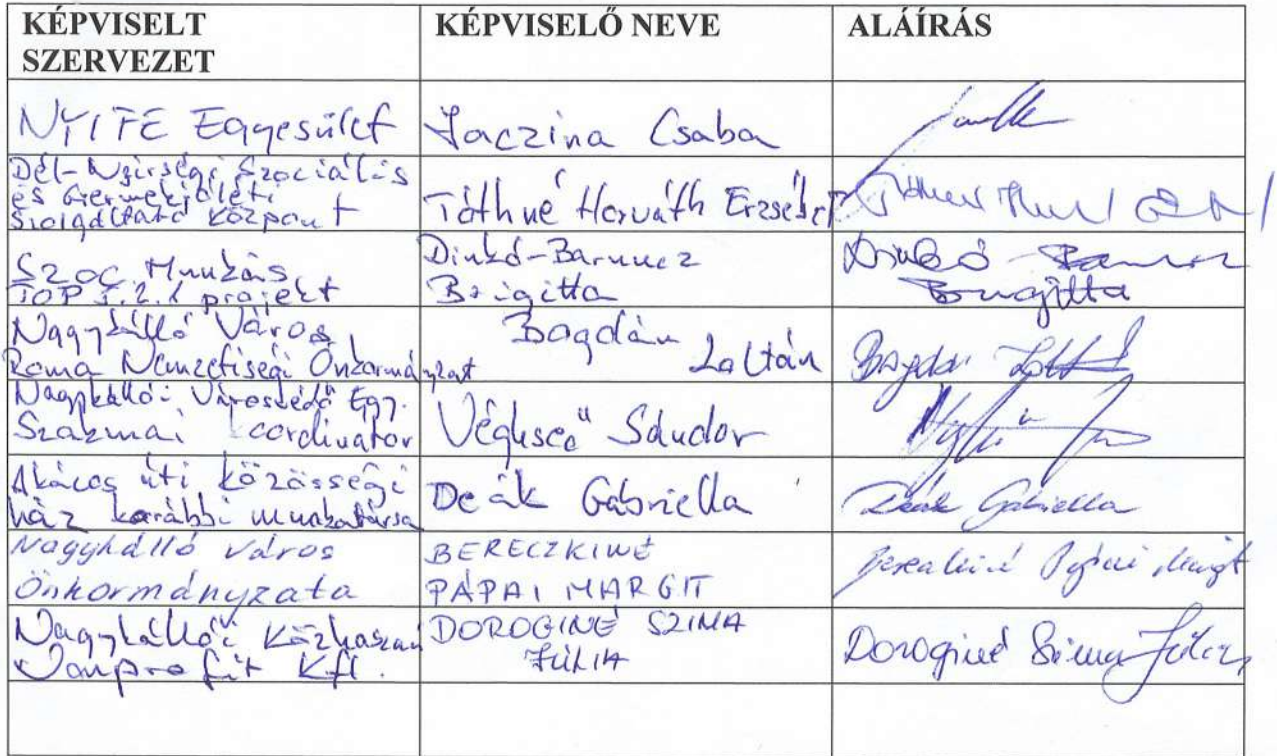 KÉPVISELT
SZERVEZET
KÉPVISELŐ NEVE
ALÁÍRÁS
NYITE Egyesület
Laczina Csaba
Dél-Nyírségi Szociális
és Gyermekjóléti
Szolgáltató Központ
Tóthné Horváth Erzsébet
Szoc. Munkás
TOP 5.2.1 projekt
Dinkó-Baruncz
Brigitta
Dinkó
Brigitta
Nagykálló Város
Roma Nemzetiségi Önkormányzat
Bogdán
Zoltán
Bogdán Zoltán
Nagykállói Városvédő Egy.
Szakmai coordinátor
Véghseő Sándor
Akácos úti közösségi
ház korábbi munkatársa
Deák Gabriella
Deák Gabriella
Nagykálló Város
Önkormányzata
BERECZKINÉ
PÁPAI MARGIT
Bereczkiné Pápai Margit
Nagykállói Közhasznú
Nonprofit Kft.
DOROGINÉ SZIMA
JÚLIA
Doroginé Szima Júlia